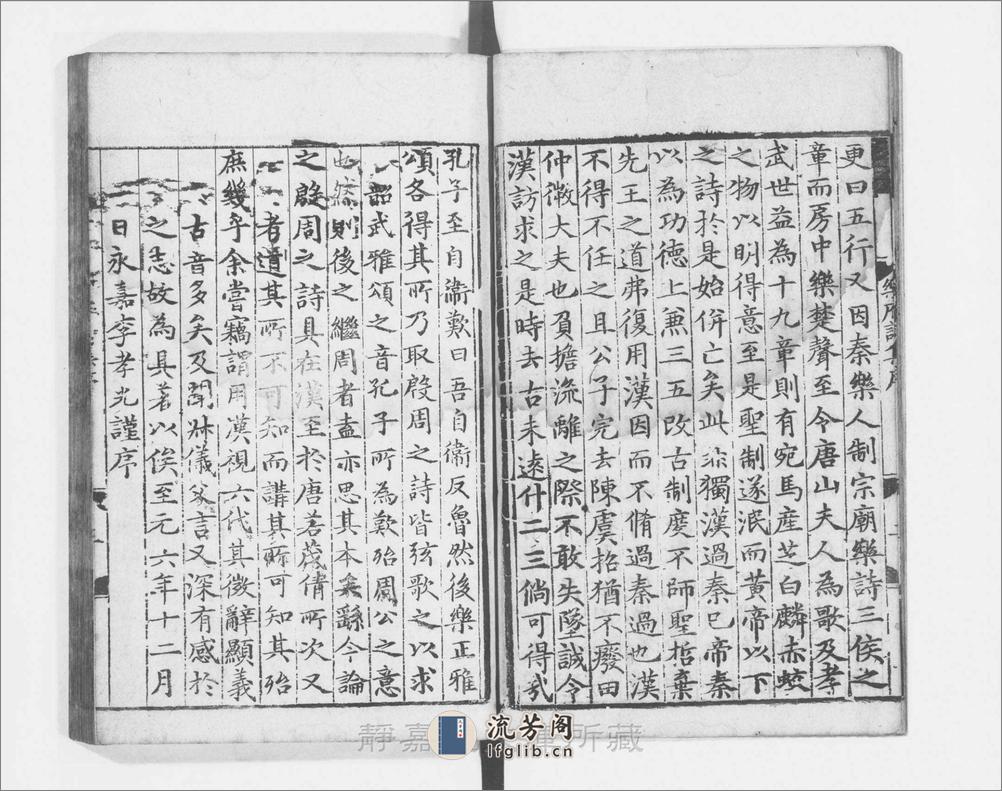 更曰五行又因秦樂人制宗廟樂詩三侯之
章而房中樂楚聲至令唐山夫人為歌及孝
武世益為十九章則有宛馬産芝白麟赤蛟
之物以明得意至是聖制遂泯而黄帝以下
之詩於是始併亡矣此非獨漢過秦已帝秦
以為功德上兼三五改古制度不師聖哲棄
先王之道弗復用漢因而不脩過秦過也漢
不得不任之且公子完去陳虞招猶不廢田
仲微大夫也負擔流離之際不敢失墜誠令
漢訪求之是時去古未逺什二三倘可得㢤
孔子至自衞歎曰吾自衞反魯然後樂正雅
頌各得其所乃取殷周之詩皆弦歌之以求
韶武雅頌之音孔子所為歎殆周公之意
也然則後之繼周者盍亦思其本矣繇今論
之殷周之詩具在漢至於唐若茂倩所次又
者道其所不可知而講其所可知其殆
庶幾乎余嘗竊謂用漢視六代其徵辭顯義
古音多矣及聞𣏌儀父言又深有感於
之志故為具著以俟至元六年十二月
日永嘉李孝光謹序
樂府詩集序
靜嘉 所藏
流芳阁
lfglib.cn